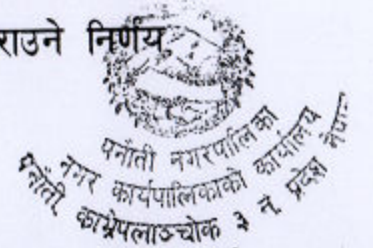 राउने निर्णय
पनौती नगरपालिका
नगर कार्यपालिकाको कार्यालय
पनौती, काभ्रेपलाञ्चोक ३ नं. प्रदेश नेपाल